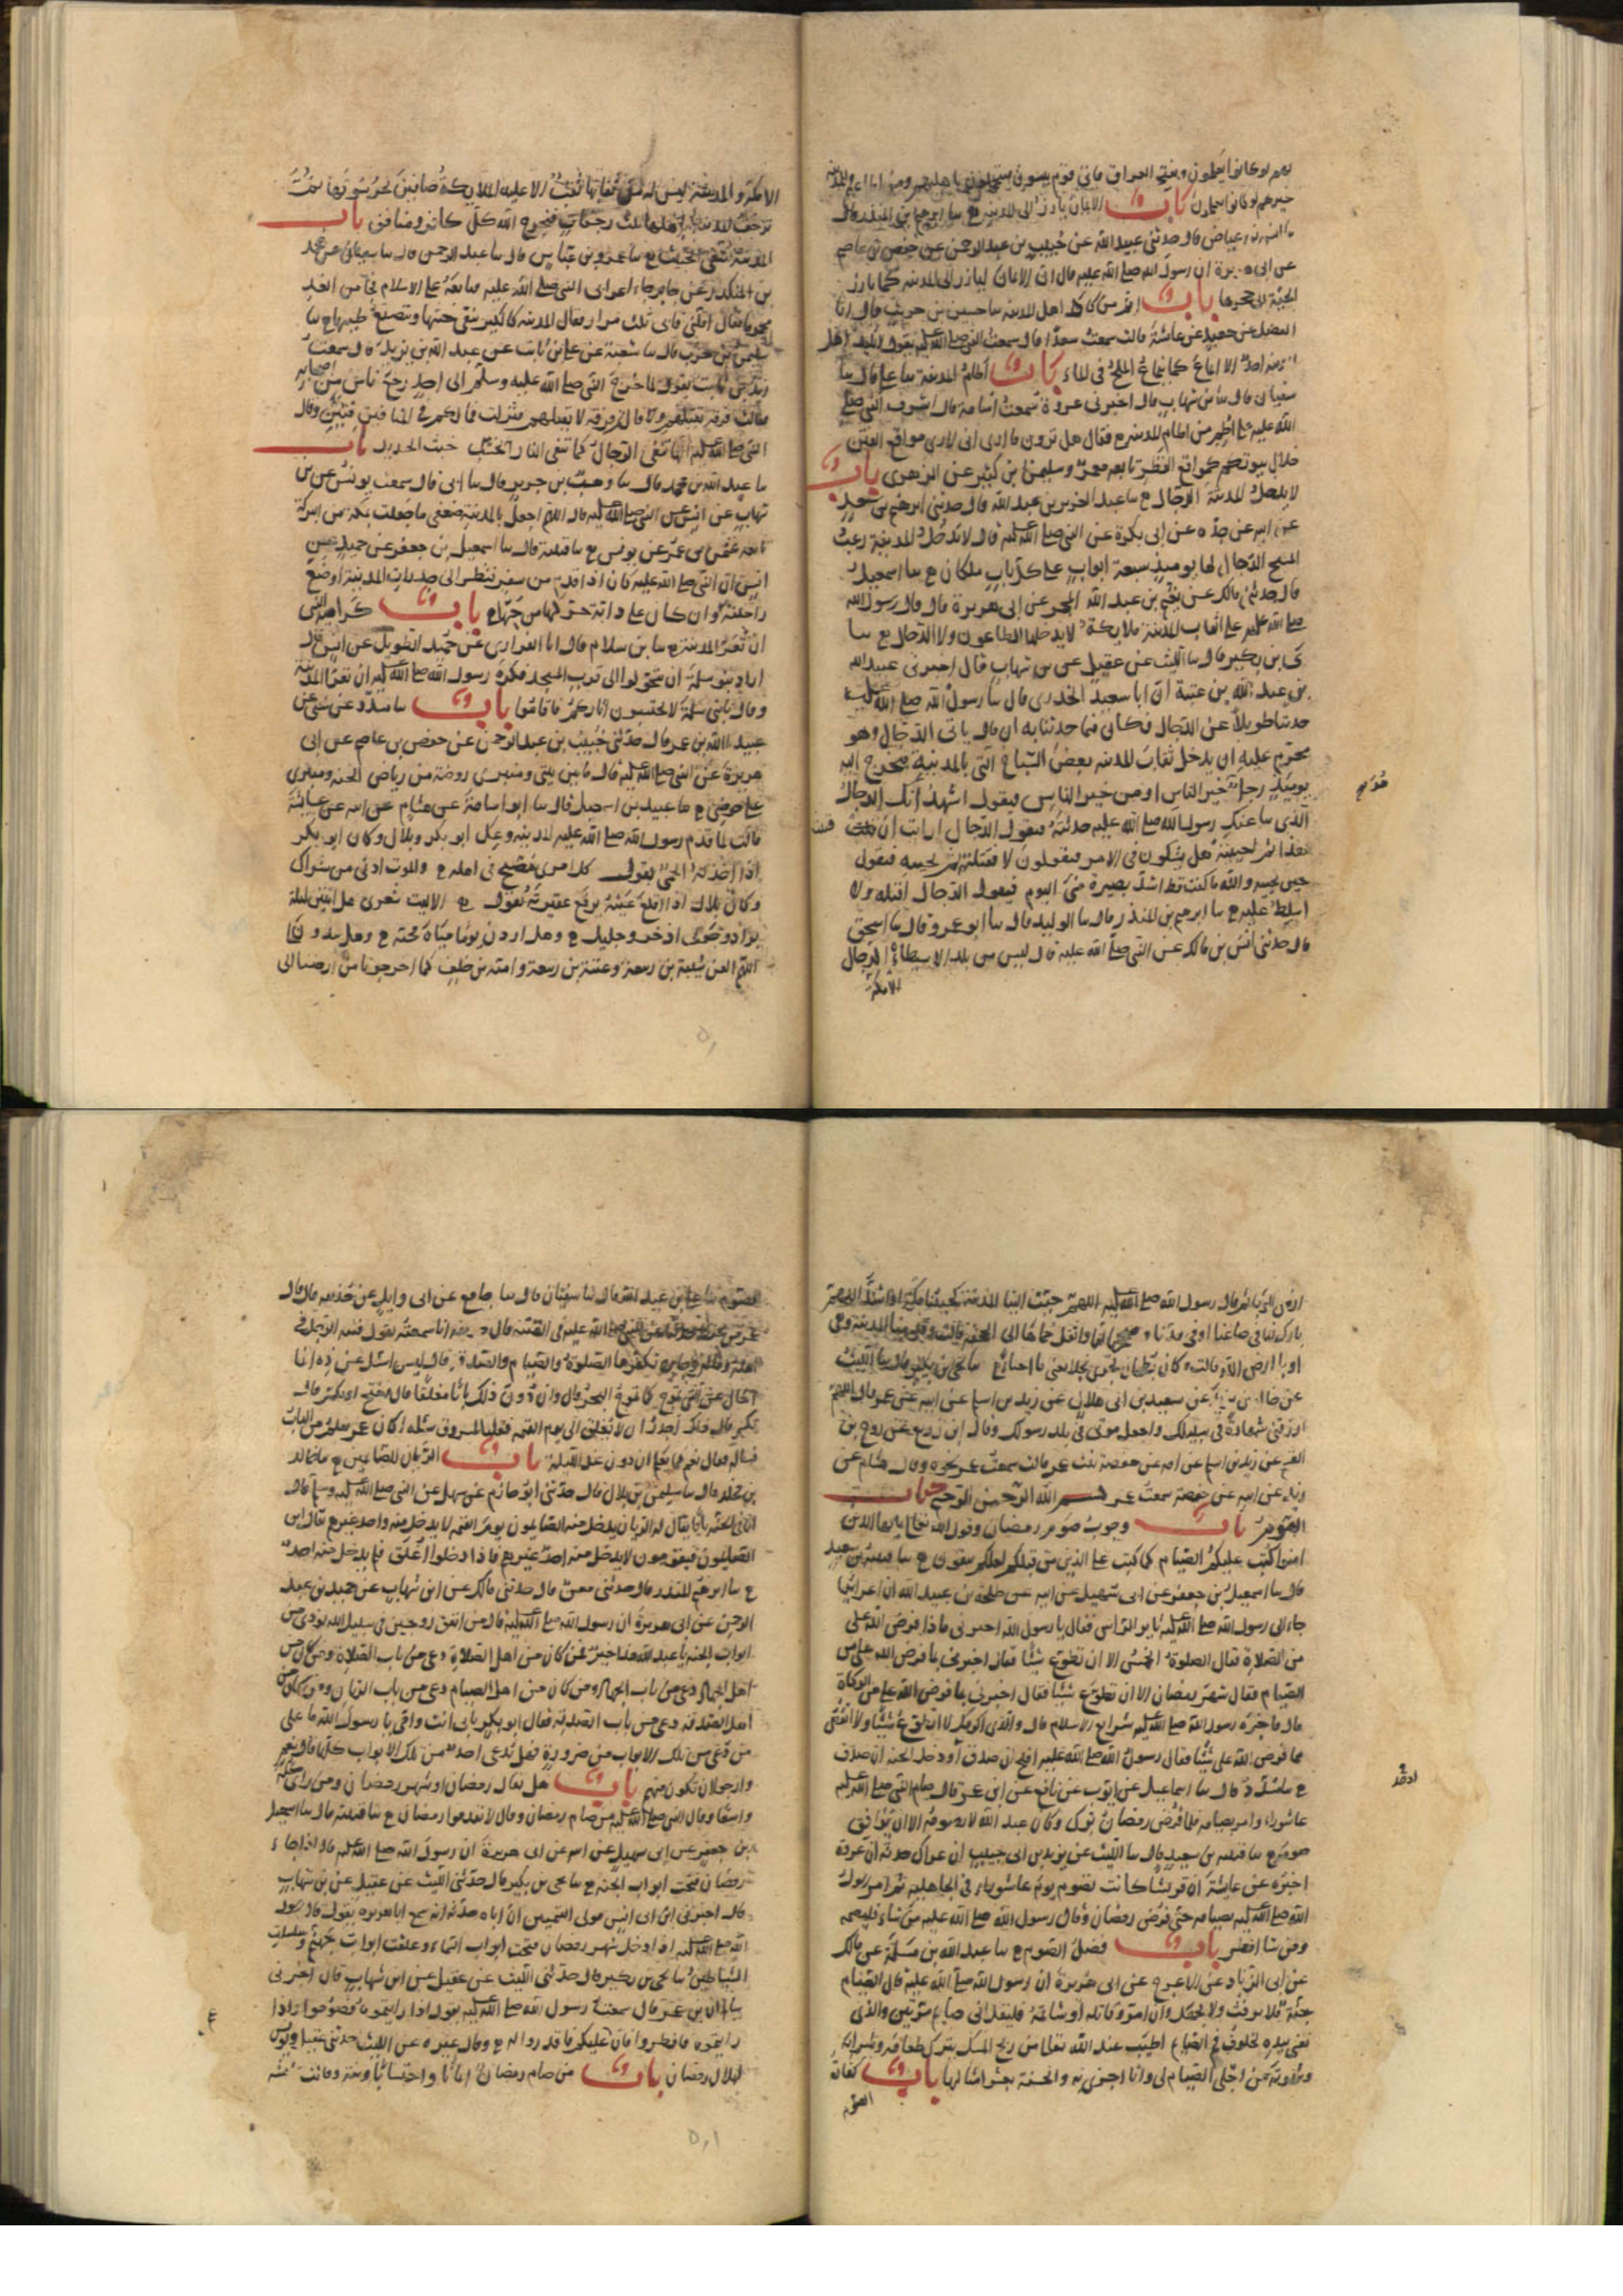 لهم لو كانوا يعلمون ويفتح العراق فاتى قوم يبسون فيتحملون باهليهم ومن اطاعهم والمدينة
خير لهم لو كانوا يعلمون باب الايمان يارز الى المدينة ح سا ابرهيم بن المنذر قال
سا انس بن عياض قال حدثنى عبيد الله عن خبيب بن عبد الرحمن عن حفص بن عاصم
عن ابى هريرة ان رسول الله صلى الله عليه قال ان الايمان ليارز الى المدينة كما يارز
الحية الى جحرها باب اثم من كاد اهل المدينة سا حسين بن حريث قال انا
الفضل عن جعيد عن عائشة قالت سمعت سعدا قال سمعت النبى صلى الله عليه يقول لا يكيد اهل
المدينة احد الا انماع كما ينماع الملح فى الماء باب اطام المدينة سا على قال سا
سفيان قال سا بن شهاب قال اخبرنى عروة سمعت اسامة قال اشرف النبى صلى
الله عليه على اطم من اطام المدينة فقال هل ترون ما ارى انى لارى مواقع الفتن
خلال بيوتكم كمواقع القطر تابعه معمر وسليمن بن كثير عن الزهرى باب
لا يدخل المدينة الدجال ح سا عبد العزيز بن عبد الله قال حدثنى ابرهيم بن سعد
عن ابيه عن جده عن ابى بكرة عن النبى صلى الله عليه قال لا يدخل المدينة رعب
المسيح الدجال لها يومئذ سبعة ابواب على كل باب ملكان ح سا اسمعيل
قال حدثنى مالك عن نعيم بن عبد الله المجمر عن ابى هريرة قال قال رسول الله
صلى الله عليه على انقاب المدينة ملايكة لا يدخلها الطاعون ولا الدجال ح سا
يحيى بن بكير قال سا الليث عن عقيل عن بن شهاب قال اخبرنى عبيد الله
بن عبد الله بن عتبة ان ابا سعيد الخدرى قال سا رسول الله صلى الله عليه
حديثا طويلا عن الدجال فكان فيما حدثنا به ان قال ياتى الدجال وهو
محرم عليه ان يدخل نقاب المدينة بعض السباخ التى بالمدينة فيخرج اليه
يومئذ رجل خير الناس او من خير الناس فيقول اشهد انك الدجال
الذى سا عنك رسول الله صلى الله عليه حديثه فيقول الدجال ارايت ان قتلت
هذا ثم احييته هل يشكون فى الامر فيقولون لا فيقتله ثم يحييه فيقول
حين يحييه والله ما كنت قط اشد بصيرة منى اليوم فيقول الدجال اقتله ولا
اسلط عليه ح سا ابرهيم بن المنذر قال سا الوليد قال سا ابو عمرو قال سا اسحق
قال حدثنى انس بن مالك عن النبى صلى الله عليه قال ليس من بلد الا سيطاه الدجال
الا مكة
الا مكة والمدينة ليس له من نقابها نقب الا عليه الملايكة صافين يحرسونها ثم
ترجف المدينة باهلها ثلث رجفات فيخرج الله كل كافر ومنافق باب
المدينة تنفى الخبث ح سا عمرو بن عباس قال سا عبد الرحمن قال سا سفيان عن محمد
بن المنكدر عن جابر جاء اعرابى النبى صلى الله عليه فبايعه على الاسلام فجا من الغد
محموما فقال اقلنى فابى ثلث مرار فقال المدينة كالكير تنفى خبثها وتنصع طيبها ح سا
سليمن بن حرب قال سا شعبة عن عدى بن ثابت عن عبد الله بن يزيد قال سمعت
زيد بن ثابت يقول لما خرج النبى صلى الله عليه وسلم الى احد رجع ناس من اصحابه
فقالت فرقة نقتلهم وقالت فرقة لا نقتلهم فنزلت فما لكم فى المنافقين فئتين وقال
النبى صلى الله عليه انها تنفى الرجال كما تنفى النار الخبث خبث الحديد باب
سا عبد الله بن محمد قال سا وهب بن جرير قال سا ابى قال سمعت يونس عن بن
شهاب عن انس عن النبى صلى الله عليه قال اللهم اجعل بالمدينة ضعفى ما جعلت بمكة من البركة
تابعه عثمن بن عمر عن يونس ح سا قتيبة قال سا اسمعيل بن جعفر عن حميد عن
انس ان النبى صلى الله عليه كان اذا قدم من سفر فنظر الى جدرات المدينة اوضع
راحلته وان كان على دابة حركها من حبها ح باب كراهية النبى
ان تعرى المدينة ح سا بن سلام قال انا الفزارى عن حميد الطويل عن انس قال
اراد بنو سلمة ان يتحولوا الى قرب المسجد فكره رسول الله صلى الله عليه ان تعرى المدينة
وقال يا بنى سلمة الا تحتسبون اثاركم فاقاموا باب سا مسدد عن يحيى عن
عبيد الله بن عمر قال حدثنى خبيب بن عبد الرحمن عن حفص بن عاصم عن ابى
هريرة عن النبى صلى الله عليه قال ما بين بيتى ومنبرى روضة من رياض الجنة ومنبرى
على حوضى ح سا عبيد بن اسمعيل قال سا ابو اسامة عن هشام عن ابيه عن عائشة
قالت لما قدم رسول الله صلى الله عليه المدينة وعك ابو بكر وبلال وكان ابو بكر
اذا اخذته الحمى يقول كل امرئ مصبح فى اهله ح والموت ادنى من شراك
وكان بلال اذا اقلع عنه يرفع عقيرته يقول ح الا ليت شعرى هل ابيتن ليلة
بواد وحولى اذخر وجليل ح وهل اردن يوما مياه مجنة ح وهل يبدون
اللهم العن شيبة بن ربيعة وعتبة بن ربيعة وامية بن خلف كما اخرجونا من ارضنا الى
ارض الوباء ثم قال رسول الله صلى الله عليه اللهم حبب الينا المدينة كحبنا مكة او اشد اللهم
بارك لنا فى صاعنا وفى مدنا وصححها لنا وانقل حماها الى الجحفة قالت وقدمنا المدينة وهى
اوبا ارض الله قالت وكان بطحان يجرى نجلا تعنى ماء اجنا ح سا يحيى بن بكير قال سا الليث
عن خالد بن يزيد عن سعيد بن ابى هلال عن زيد بن اسلم عن ابيه عن عمر قال اللهم
ارزقنى شهادة فى سبيلك واجعل موتى فى بلد رسولك وقال ابن زريع عن روح بن
القسم عن زيد بن اسلم عن امه عن حفصة بنت عمر قالت سمعت عمر نحوه وقال هشام عن
زيد عن ابيه عن حفصة سمعت عمر بسم الله الرحمن الرحيم كتاب
الصوم باب وجوب صوم رمضان وقول الله تعالى يا ايها الذين
امنوا كتب عليكم الصيام كما كتب على الذين من قبلكم لعلكم تتقون ح سا قتيبة بن سعيد
قال سا اسمعيل بن جعفر عن ابى سهيل عن ابيه عن طلحة بن عبيد الله ان اعرابيا
جاء الى رسول الله صلى الله عليه ثاير الراس فقال يا رسول الله اخبرنى ماذا فرض الله على
من الصلاة فقال الصلوة الخمس الا ان تطوع شيئا فقال اخبرنى ما فرض الله على من
الصيام فقال شهر رمضان الا ان تطوع شيئا فقال اخبرنى بما فرض الله على من الزكاة
قال فاخبره رسول الله صلى الله عليه شرايع الاسلام قال والذى اكرمك لا اتطوع شيئا ولا انقص
مما فرض الله على شيئا فقال رسول الله صلى الله عليه افلح ان صدق او دخل الجنة ان صدق
ح سا مسدد قال سا اسماعيل عن ايوب عن نافع عن ابن عمر قال صام النبى صلى الله عليه
عاشوراء وامر بصيامه فلما فرض رمضان ترك وكان عبد الله لا يصومه الا ان يوافق
صومه ح سا قتيبة بن سعيد قال سا الليث عن يزيد بن ابى حبيب ان عراك حدثه ان عروة
اخبره عن عايشة ان قريشا كانت تصوم يوم عاشوراء فى الجاهلية ثم امر رسول
الله صلى الله عليه بصيامه حتى فرض رمضان وقال رسول الله صلى الله عليه من شاء فليصمه
ومن شا افطر باب فضل الصوم ح سا عبد الله بن مسلمة عن مالك
عن ابى الزناد عن الاعرج عن ابى هريرة ان رسول الله صلى الله عليه قال الصيام
جنة فلا يرفث ولا يجهل وان امرؤ قاتله او شاتمه فليقل انى صايم مرتين والذى
نفسى بيده لخلوف فم الصايم اطيب عند الله تعالى من ريح المسك يترك طعامه وشرابه
وشهوته من اجلى الصيام لى وانا اجزى به والحسنة بعشر امثالها باب كفارة
الصوم
الصوم سا على بن عبد الله قال سا سفيان قال سا جامع عن ابى وايل عن حذيفة قال قال
عمر من يحفظ حديثا عن النبى صلى الله عليه فى الفتنة قال حذيفة انا سمعته يقول فتنة الرجل فى
اهله وماله وجاره تكفرها الصلوة والصيام والصدقة قال ليس اسئل عن ذه انما
اسال عن التى تموج كما تموج البحر قال وان دون ذلك بابا مغلقا قال فيفتح او يكسر قال
يكسر قال ذلك اجدر ان لا يغلق الى يوم القيمة فقلنا لمسروق سله اكان عمر يعلم من الباب
فساله فقال نعم كما يعلم ان دون غد الليلة باب الريان للصايمين ح سا خالد
بن مخلد قال سا سليمن بن بلال قال حدثنى ابو حازم عن سهل عن النبى صلى الله عليه وسلم قال
ان فى الجنة بابا يقال له الريان يدخل منه الصايمون يوم القيمة لا يدخل منه احد غيرهم يقال اين
الصايمون فيقومون لا يدخل منه احد غيرهم فاذا دخلوا اغلق فلم يدخل منه احد
ح سا ابرهيم بن المنذر قال حدثنى معن قال حدثنى مالك عن ابن شهاب عن حميد بن عبد
الرحمن عن ابى هريرة ان رسول الله صلى الله عليه قال من انفق زوجين فى سبيل الله نودى من
ابواب الجنة يا عبد الله هذا خير فمن كان من اهل الصلاة دعى من باب الصلاة ومن كان من
اهل الجهاد دعى من باب الجهاد ومن كان من اهل الصيام دعى من باب الريان ومن كان من
اهل الصدقة دعى من باب الصدقة فقال ابو بكر بابى انت وامى يا رسول الله ما على
من دعى من تلك الابواب من ضرورة فهل يدعى احد من تلك الابواب كلها قال نعم
وارجو ان تكون منهم باب هل يقال رمضان او شهر رمضان ومن راى كله
واسعا وقال النبى صلى الله عليه من صام رمضان وقال لا تقدموا رمضان ح سا قتيبة قال سا اسمعيل
بن جعفر عن ابى سهيل عن ابيه عن ابى هريرة ان رسول الله صلى الله عليه قال اذا جاء
رمضان فتحت ابواب الجنة ح سا يحيى بن بكير قال حدثنى الليث عن عقيل عن بن شهاب
قال اخبرنى ابن ابى انس مولى التيميين ان اباه حدثه انه سمع ابا هريرة يقول قال رسول
الله صلى الله عليه اذا دخل شهر رمضان فتحت ابواب السماء وغلقت ابواب جهنم وسلسلت
الشياطين سا يحيى بن بكير قال حدثنى الليث عن عقيل عن ابن شهاب قال اخبرنى
سالم ان بن عمر قال سمعت رسول الله صلى الله عليه يقول اذا رايتموه فصوموا واذا
رايتموه فافطروا فان غم عليكم فاقدروا له ح وقال غيره عن الليث حدثنى عقيل ويونس
لهلال رمضان باب من صام رمضان ايمانا واحتسابا ونية وقالت عايشة